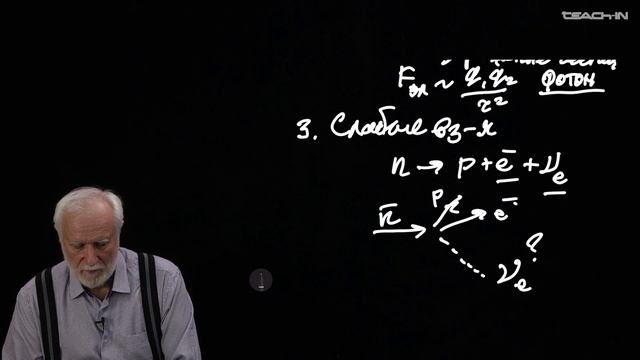 TEACH-IN
F эл ~ q₁q₂ / r² фотон
3. Слабые вз-я
n → p + e⁻ + ν e
n p e⁻
?
ν e